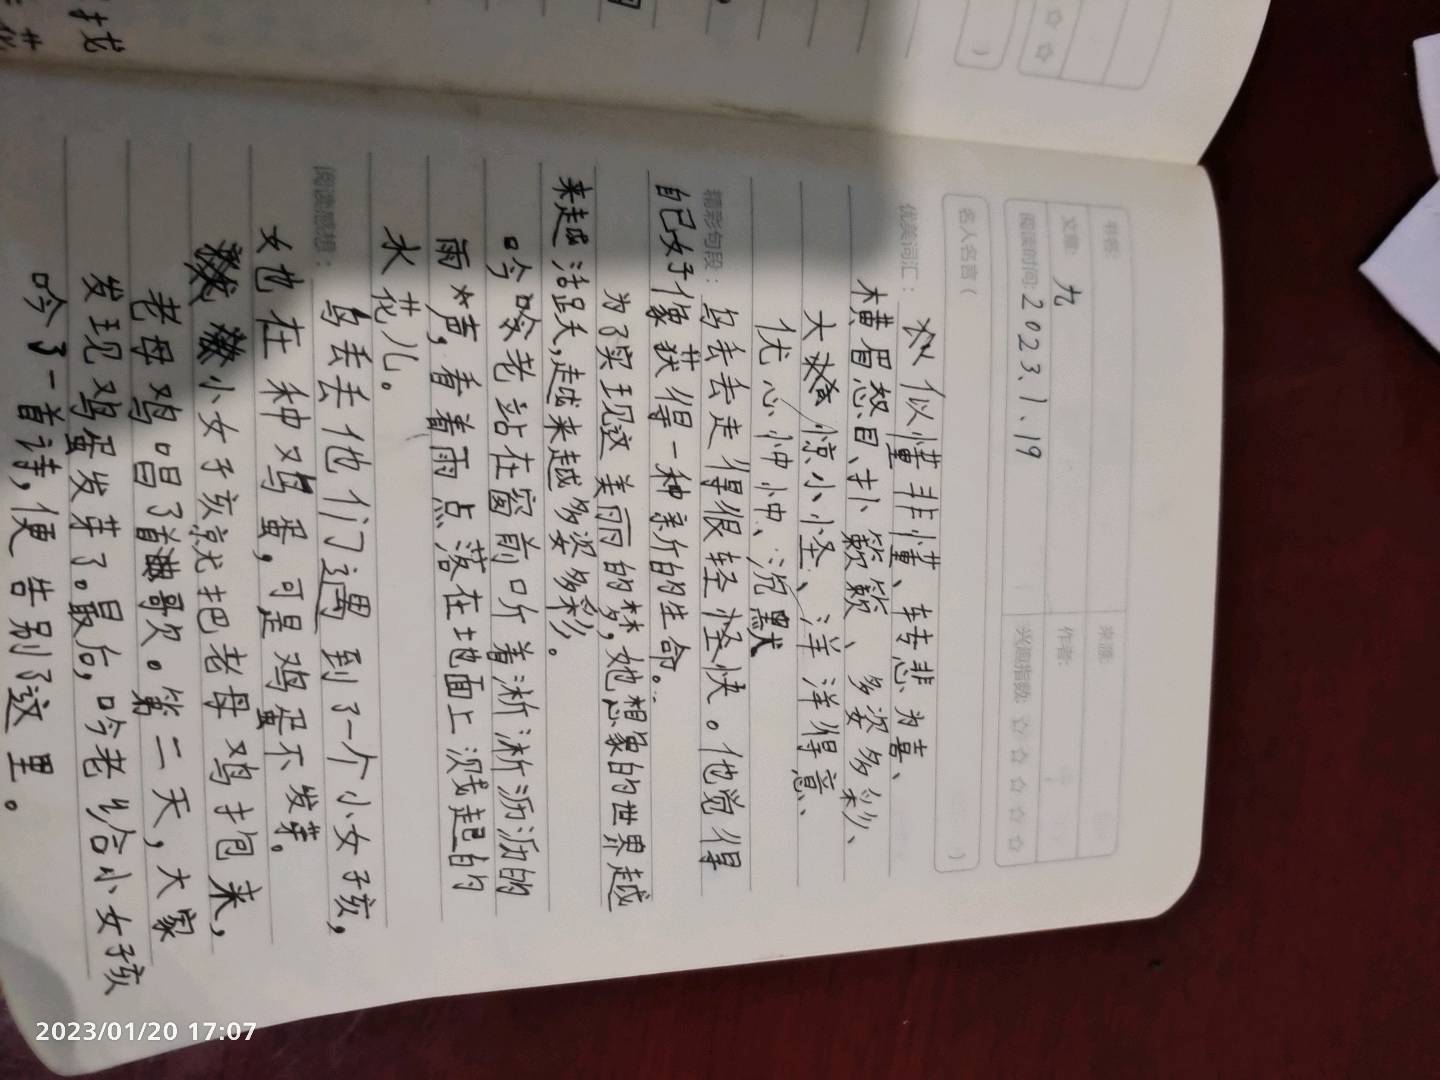 书名:
来源:
文章: 九
作者:
阅读时间: 2023、1、19
兴趣指数: ☆ ☆ ☆ ☆ ☆
名人名言（ ）
优美词汇: 似懂非懂、转悲为喜、
横眉怒目、扑簌簌、多姿多彩、
大惊小小怪、洋洋得意、
优心忡忡、沉默
精彩句段: 乌丢丢走得很轻怪快。他觉得
自己好像获得一种新的生命。
为了实现这美丽的梦，她想象的世界越
来越活跃，越来越多姿多彩。
吟老站在窗前听着淅淅沥沥的
雨声，看着雨点落在地面上溅起的
水花儿。
阅读感想: 乌丢丢他们遇到了一个小女孩，
女也在种鸡蛋，可是鸡蛋不发芽。
小女孩就把老母鸡抱来，
老母鸡唱了首歌。第二天，大家
发现鸡蛋发芽了。最后，吟老给小女孩
吟了一首诗，便告别了这里。
找
2023/01/20 17:07